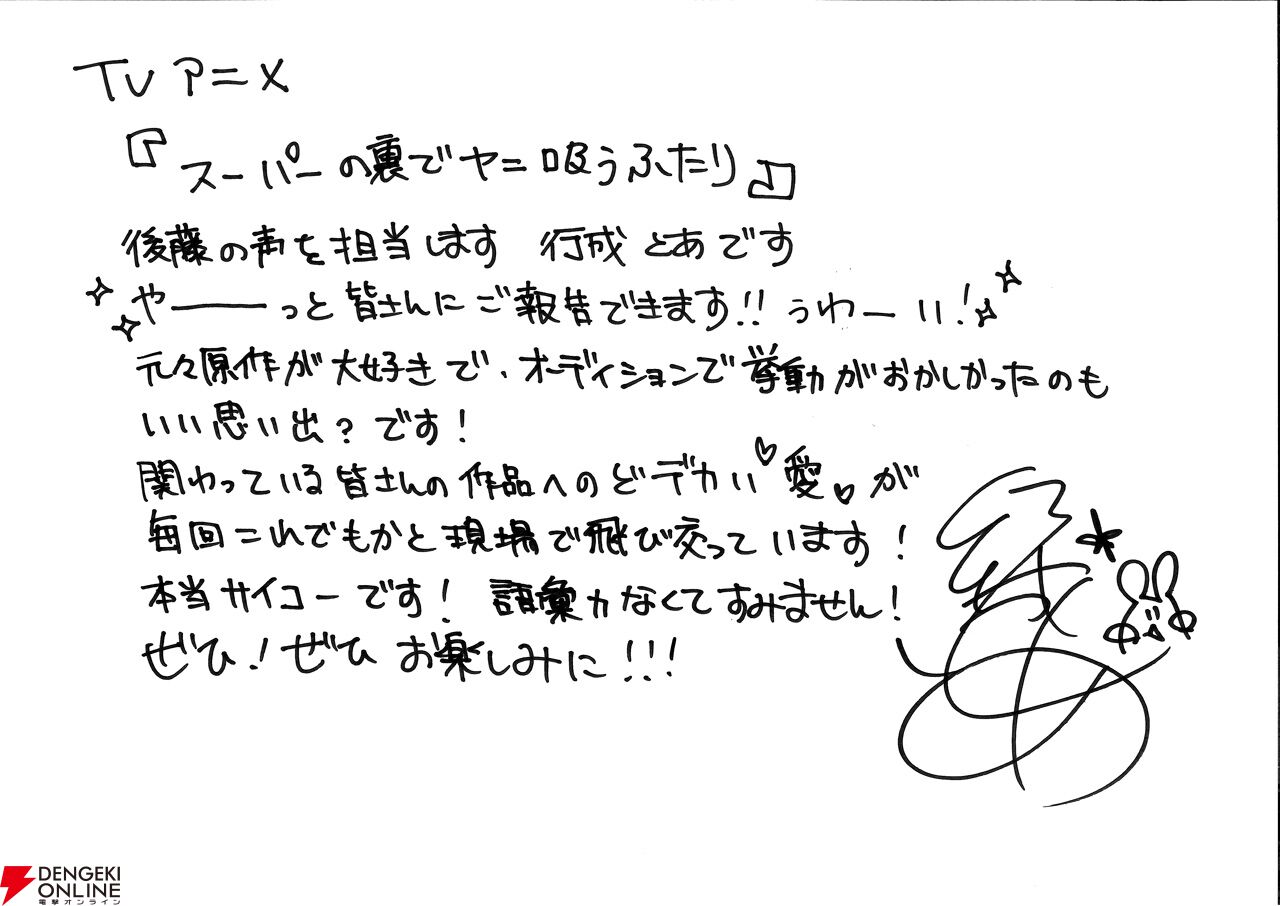 TVアニメ
『スーパーの裏でヤニ吸うふたり』
後藤の声を担当します 行成とあです
やーーーっと皆さんにご報告できます!! うわーい!
元々原作が大好きで、オーディションで挙動がおかしかったのも
いい思い出?です!
関わっている皆さんの作品へのどデカい♡愛♡が
毎回これでもかと現場で飛び交っています!
本当サイコーです! 語彙力なくてすみません!
ぜひ!ぜひ お楽しみに!!!
DENGEKI
ONLINE
電撃オンライン